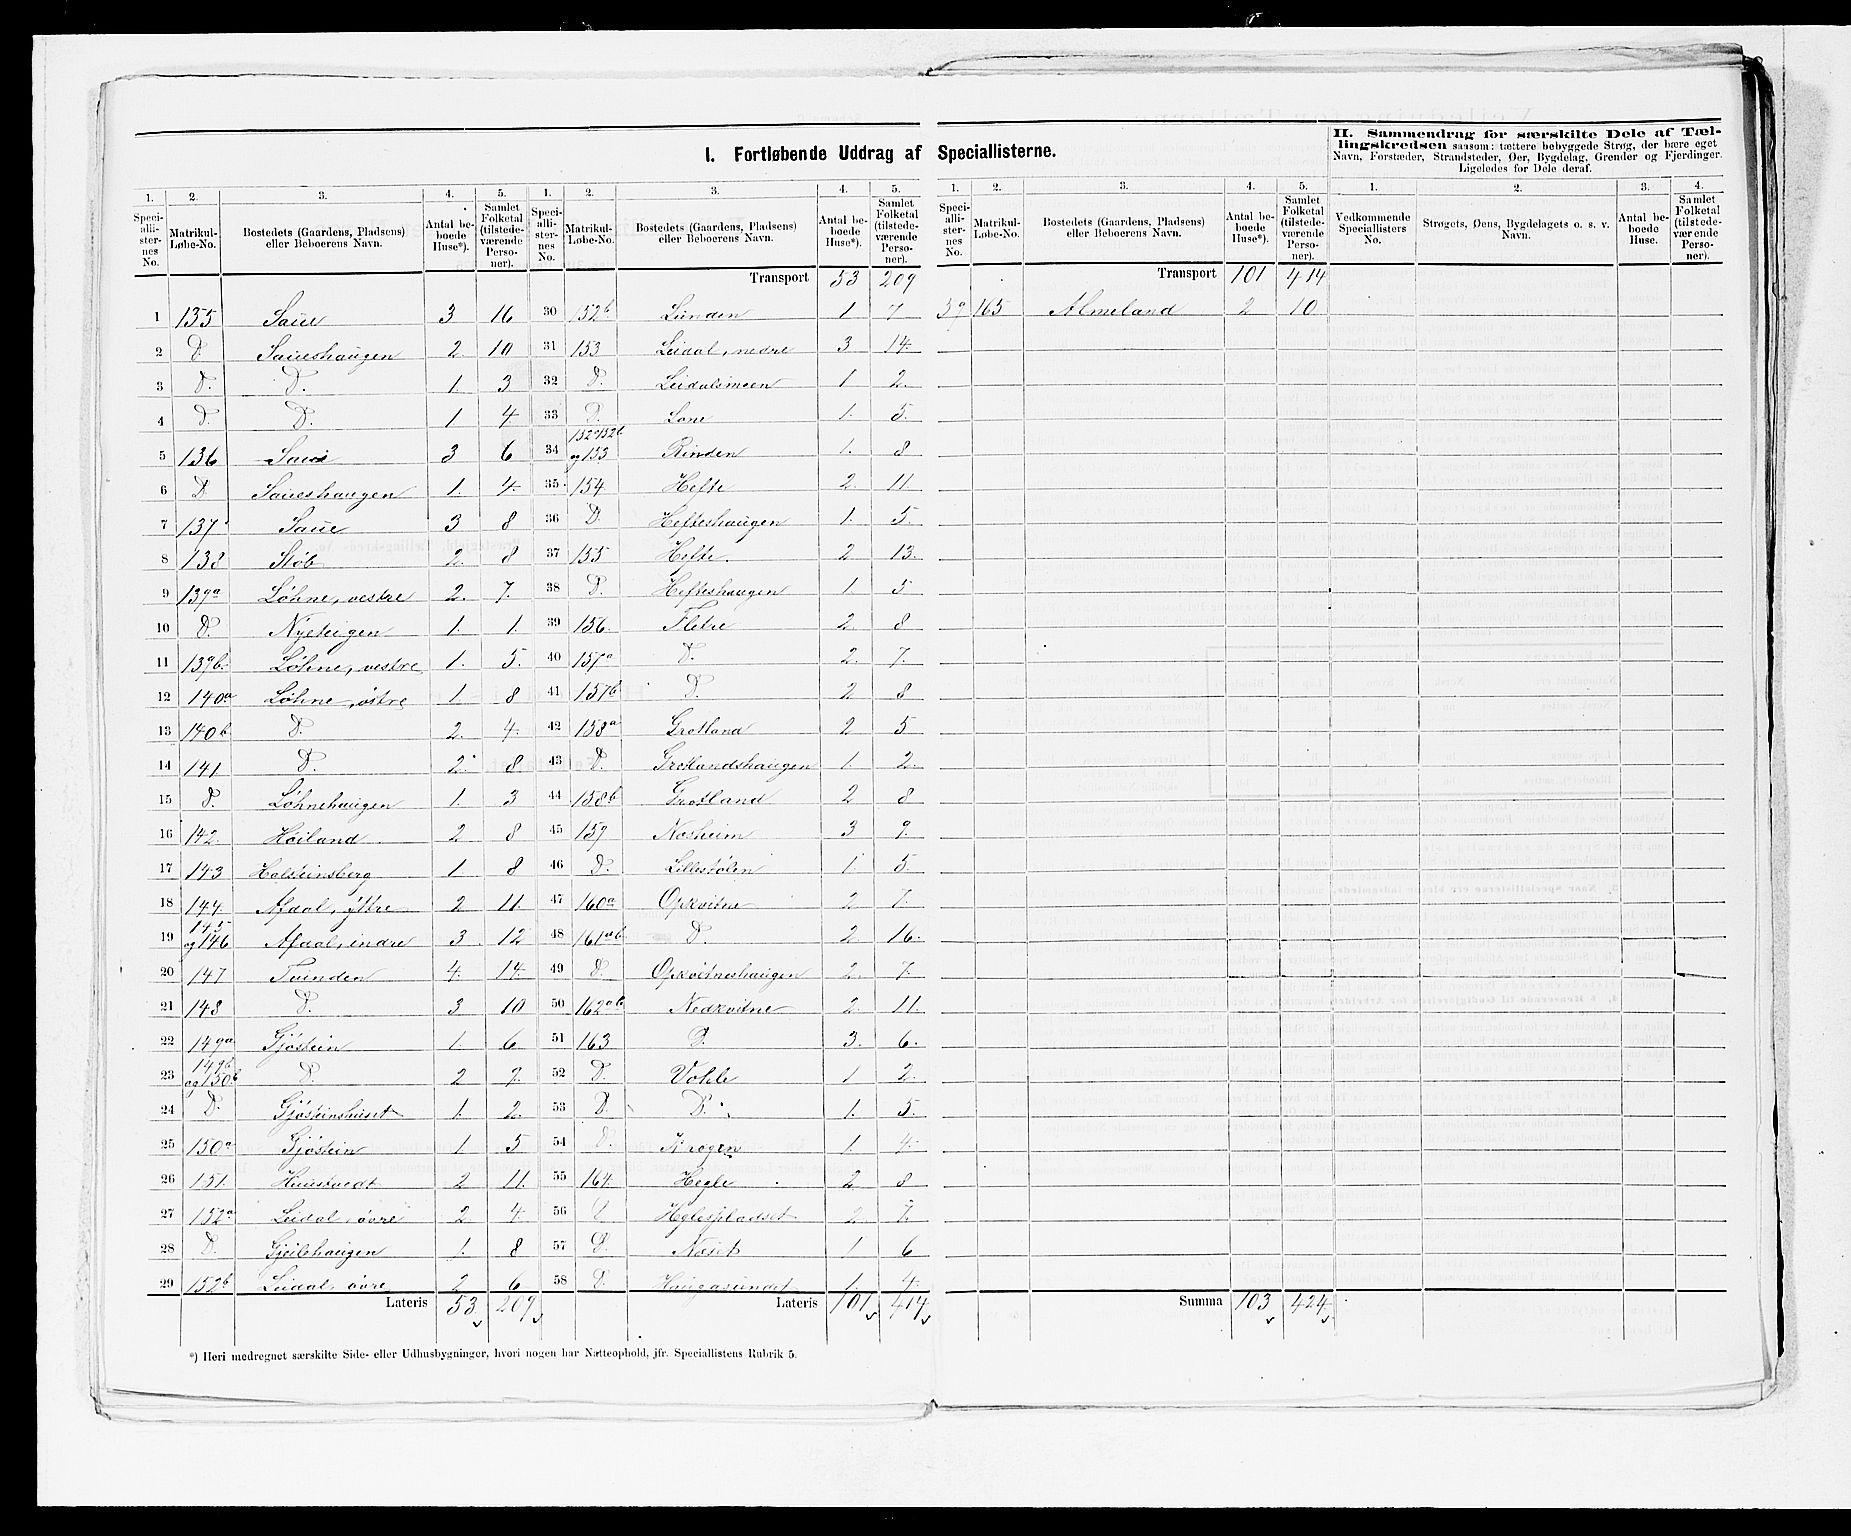 I. Fortløbende Uddrag af Speciallisterne.
II. Sammendrag for særskilte Dele af Tæl-
lingskredsen saasom: tættere bebyggede Strøg, der bære eget
Navn, Forstæder, Strandsteder, Øer, Bygdelag, Grender og Fjerdinger.
Ligeledes for Dele deraf.
1. 2. 3. 4. 5. 1. 2. 3. 4. 5. 1. 2. 3. 4. 5. 1. 2. 3. 4.
Speci-allister-nes No. Matrikul-Løbe-No. Bostedets (Gaardens, Pladsens) eller Beboerens Navn. Antal beboede Huse*). Samlet Folketal (tilstedeværende Personer).
Speci-allister-nes No. Matrikul-Løbe-No. Bostedets (Gaardens, Pladsens) eller Beboerens Navn. Antal beboede Huse*). Samlet Folketal (tilstedeværende Personer).
Speci-allister-nes No. Matrikul-Løbe-No. Bostedets (Gaardens, Pladsens) eller Beboerens Navn. Antal beboede Huse*). Samlet Folketal (tilstedeværende Personer).
Vedkommende Speciallisters No. Strøgets, Øens, Bygdelagets o. s. v. Navn. Antal beboede Huse. Samlet Folketal (tilstedeværende Personer).
1 135 Saue 3 16
2 D. Saueshaugen 2. 10
3 D. D. 1. 3
4 D. D. 1 4
5 136 Saue 3 6
6 D. Saueshaugen 1. 4.
7 137 Saue 3 8
8 138 Støb 2. 8
9 139a Løhne, vestre 2. 7.
10 D. Nyeteigen 1. 1.
11 139b. Løhne, vestre 1. 5.
12 140a Løhne, østre 1 8
13 140b. D. 2. 4.
14 141 D. 2. 8.
15 D. Løhnehaugen 1. 3
16 142. Høiland 2 8
17 143 Holsteinsberg 1. 8
18 144 Afdal, yttre 2 11.
19 145 og 146 Afdal, indre 3. 12
20 147 Tvinden 4. 14.
21 148 D. 3 10
22 149a Gjøstein 1. 6
23 149b og 150b D. 2
24 D. Gjøsteinshuset 1. 2.
25 150a Gjøstein 1 5
26 151. Huustvedt 2 11.
27 152a Leidal, øvre 2 4.
28 D. Gjeilehaugen 1. 8
29 152b Leidal, øvre 2 6
Lateris 53 209
Transport 53 209
30 152b Lunden 1 7
31 153 Leidal, nedre 3 14.
32 D. Leidalsmoen 1 2.
33 D. Lone 1. 5.
34 152a 152b og 153 Rinden 1. 8
35 154 Hefte 2. 11
36 D. Hefteshaugen 1. 5.
37 155 Hefte. 2 13.
38 D. Hefteshaugen 1 5
39 156. Fletre 2. 8
40 157a D. 2. 7.
41 157b D. 2 8
42 158a Grotland 2 5
43 D. Grotlandshaugen 1. 2.
44 158b Grotland 2 8
45 159 Nosheim 3 9.
46 D. Lillestølen 1. 5
47 160a Opkvitne 2 7.
48 161ab D. 2 16.
49 D. Opkvitneshaugen 2. 7.
50 162ab Nedkvitne 2. 11.
51 163 D. 3. 6.
52 D. Vohle 1 2.
53 D. D. 1. 5.
54 D. Krogen 1. 4
55 164. Hegle 2 8
56 Heglespladset 2. 7.
57 D. Næset 1 6
58 D. Haugasundet 1. 4.
Lateris 101 414
Transport 101 414
59 165 Almeland 2 10
Summa 103 424
*) Heri medregnet særskilte Side- eller Udhusbygninger, hvori nogen har Natteophold, jfr. Speciallistens Rubrik 5.